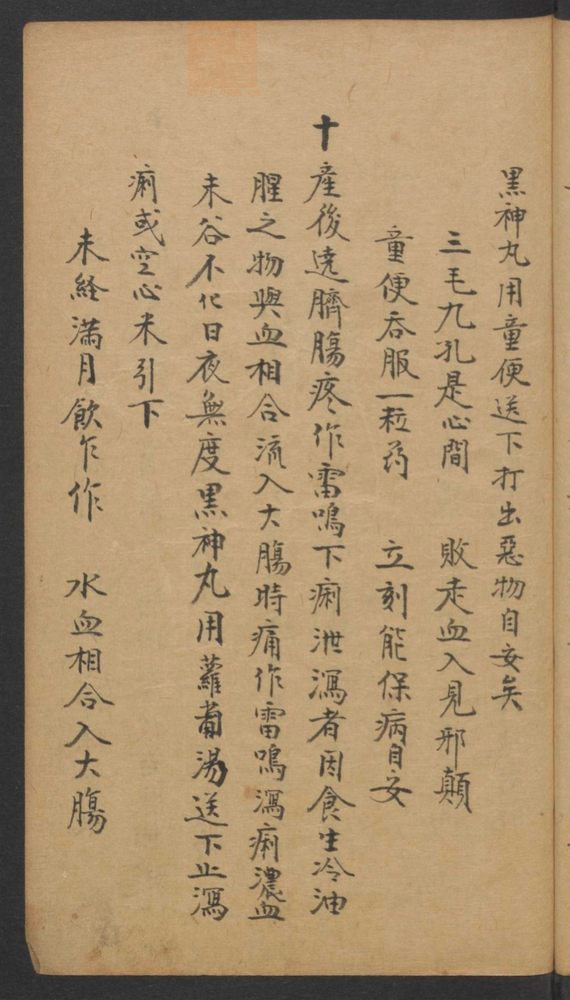 黒神丸用童便送下打出惡物自安矣
三毛九孔是心間　敗走血入見邪顛
童便吞服一粒药　立刻能保病自安
十產後遶臍腸疼作雷鳴下痢泄瀉者因食生冷油
腥之物與血相合流入大腸時痛作雷鳴瀉痢濃血
未谷不化日夜無度黒神丸用蘿蔔湯送下止瀉
痢或空心米引下
未經滿月飲乍作　水血相合入大腸